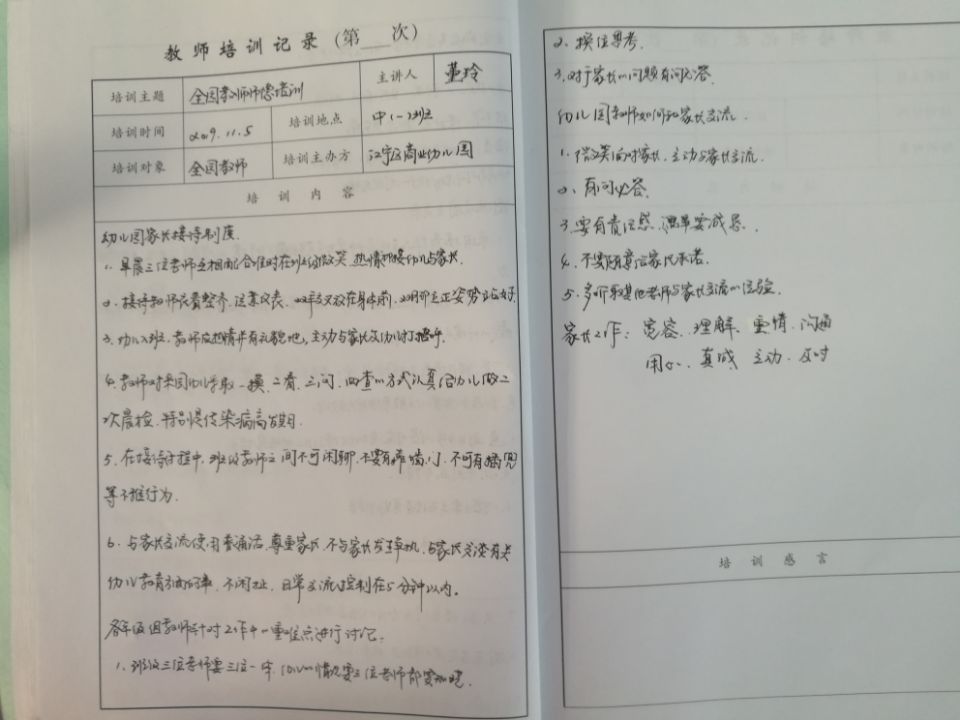 教师培训记录（第__次）
培训主题 全园教师师德培训 主讲人 董玲
培训时间 2019.11.5 培训地点 中(一)班
培训对象 全园教师 培训主办方 江宁区商业幼儿园
培训内容
幼儿园家长接待制度.
1. 早晨三位老师互相配合准时在班级微笑.热情迎接幼儿与家长.
2. 接待教师衣着整齐.注意仪表.双手交叉放在身体前.双脚立正姿势站好.
3. 幼儿入班.教师应热情并有礼貌地,主动与家长及幼儿打招呼.
4. 教师对来园幼儿采取一摸.二看.三问.四查的方式认真给幼儿做二
次晨检.特别是传染病高发期.
5. 在接待过程中.班级教师之间不可闲聊.不要有靠墙、门.不可有插兜
等不雅行为.
6. 与家长交流使用普通话.尊重家长.不与家长发生争执.与家长交谈有关
幼儿教育方面的事.不闲扯.日常交流控制在5分钟以内。
各年级组教师针对工作中一重难点进行讨论:
1. 班级三位老师要三位一体.幼儿的情况要三位老师都要知晓.
2. 换位思考.
3. 对于家长的问题有问必答.
幼儿园教师如何和家长交流.
1. 微笑面对家长.主动与家长交流.
2. 有问必答.
3. 要有责任感.遇事要诚恳.
4. 不要随意给家长承诺.
5. 多听取其他老师与家长交流的经验.
家长工作: 宽容. 理解. 重情. 沟通
用心. 真诚 主动. 及时
培训感言